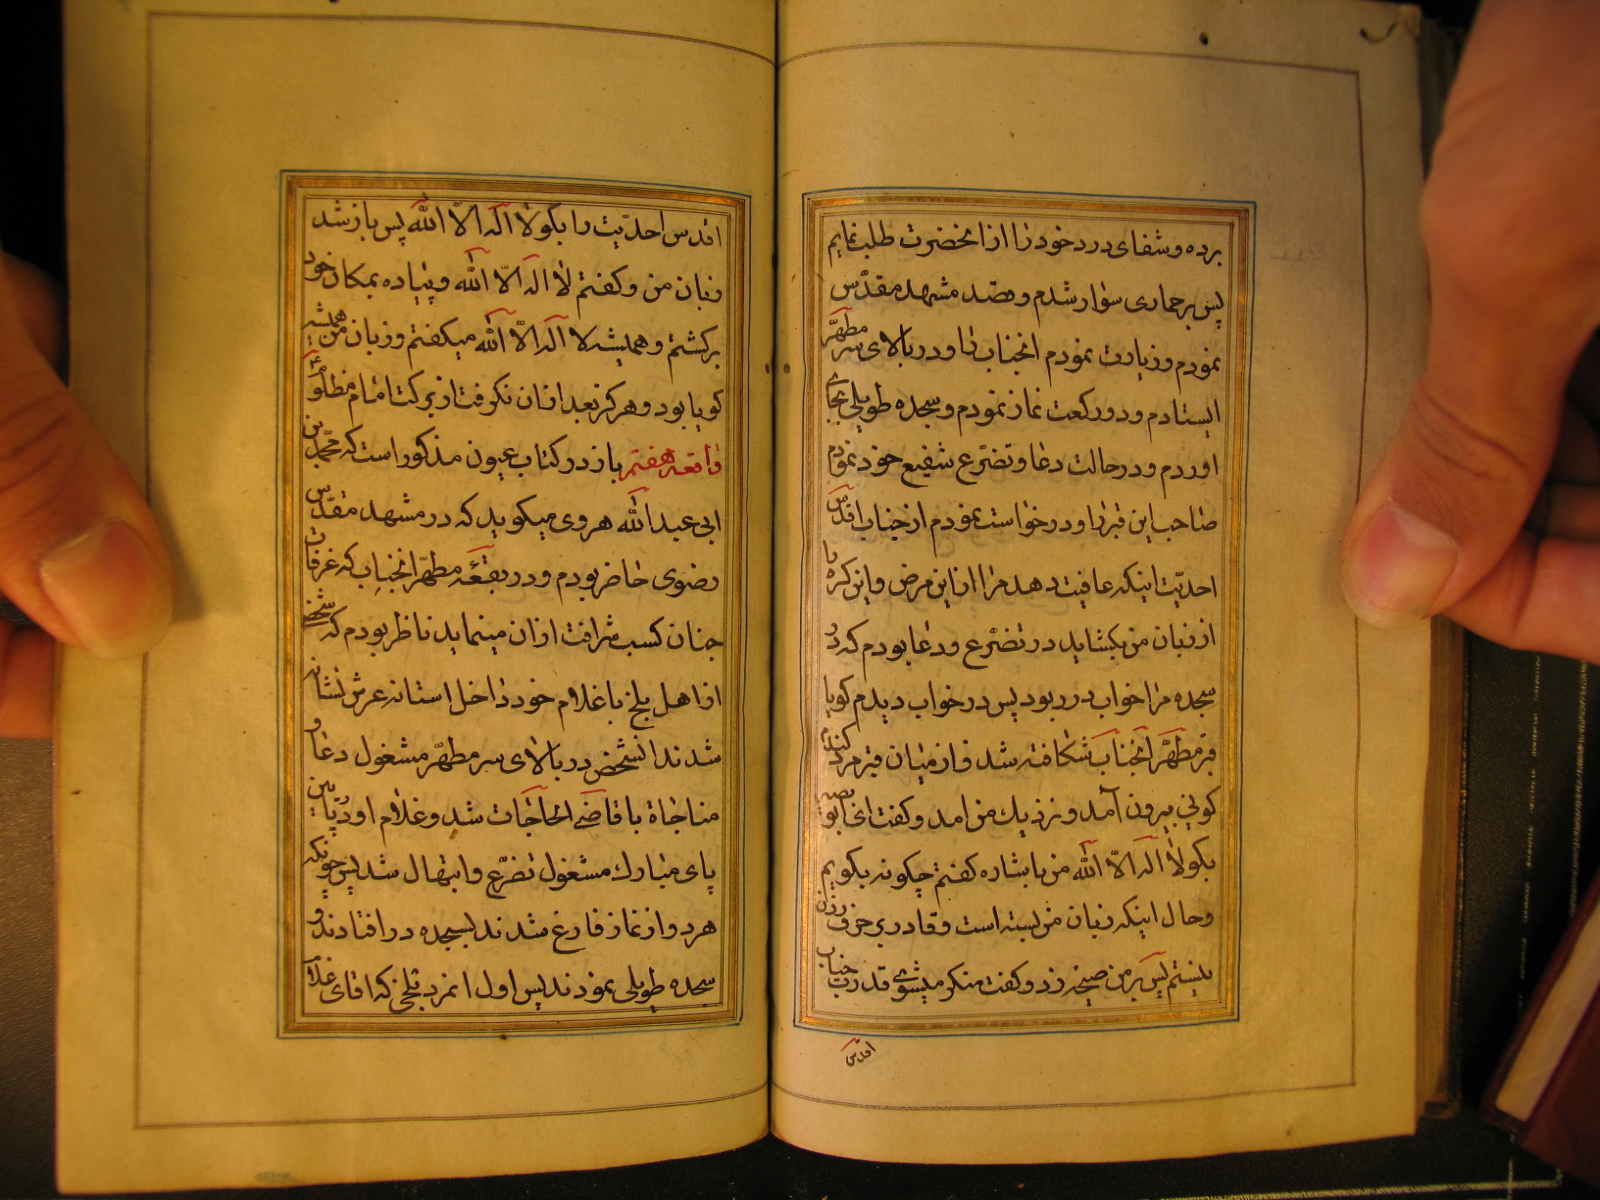 برده و شفای درد خود را از انحضرت طلب نمایم
پس برحماری سوار شدم و قصد مشهد مقدّس
نمودم و زیارت نمودم انجناب را و در بالای سر مطهّر
ایستادم و دو رکعت نماز نمودم و سجده طویلی بجای
اوردم و در حالت دعا و تضرّع شفیع خود نمودم
صاحب این قبر را و درخواست نمودم از جناب اقدس
احدیّت اینکه عافیت دهد مرا از این مرض و این کره را
از زبان من بکشاید در تضرّع و دعا بودم که در
سجده مرا خواب در ربود پس در خواب دیدم کویا
قبر مطهّر انجناب شکافته شد و از میان قبر مرد کندم
کونی بیرون آمد و نزدیك من امد و کفت ای ابو نصر
بکو لا اله الاّ الله من با بشاره کفتم چکونه بکویم
و حال اینکه زبان من بسته است و قادر بر حرف زدن
نیستم پس بر من صیحه زد و کفت منکر میشوی قدرت جناب
اقدس
اقدس احدیّت را بکو لا اله الاّ الله پس باز شد
زبان من و کفتم لا اله الاّ الله و پیاده بمکان خود
برکشتم و همیشه لا اله الاّ الله میکفتم و زبان من همیشه
کویا بود و هرکز بعد از ان نکرفت از برکت امام مظلوم ع
واقعه هفتم باز در کتاب عیون مذکور است که محمّد بن
ابی عبد الله هروی میکوید که در مشهد مقدّس
رضوی حاضر بودم و در بقعه مطهّر انجناب که غرفات
جنان کسب شرافت از ان مینماید ناظر بودم که شخصی
از اهل بلخ با غلام خود داخل استانه عرش نشانه
شدند انشخص در بالای سر مطهّر مشغول دعا و
مناجاة با قاضی الحاجات شد و غلام او در پایین
پای مبارك مشغول تضرّع و ابتهال شد پس چونکه
هر دو از نماز فارغ شدند بسجده در افتادند و
سجده طویلی نمودند پس اول انمرد بلخی که اقای غلام